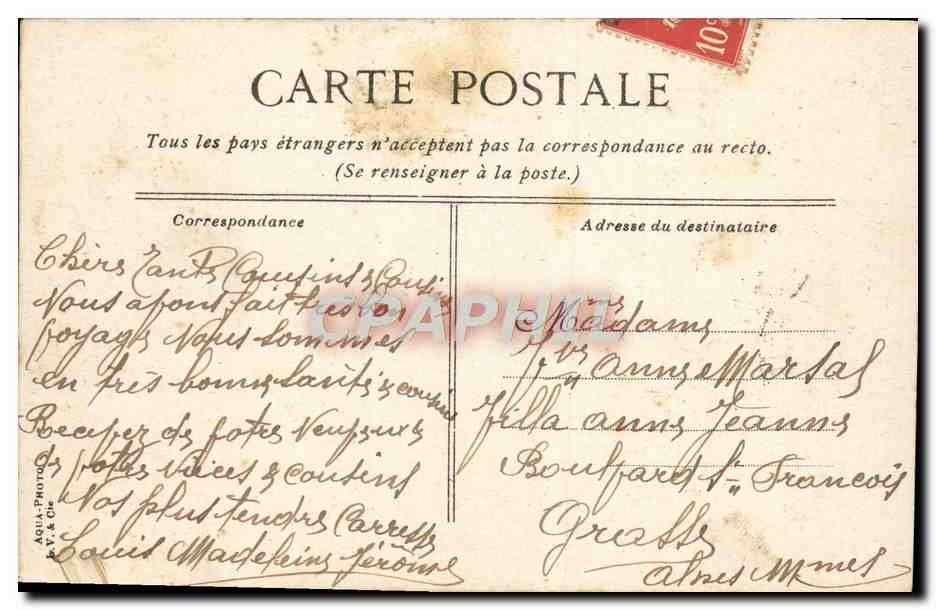 10c
CARTE POSTALE
Tous les pays étrangers n'acceptent pas la correspondance au recto.
(Se renseigner à la poste.)
Correspondance
Chère Tante Cousins & Cousine
Nous avons fait bon
voyage Nous sommes
en très bonne santé & cousine
Recevez de votre Neveux &
de votre Nièces & cousins
Nos plus tendre Carresse
Louis Madeleine Jérôme
AQUA-PHOTO
L. V. & Cie
Adresse du destinataire
Madame
Vve Anne Marsal
Villa anne Jeanne
Boulvard St François
Grasse
alpes Mmes
CPAPHIL